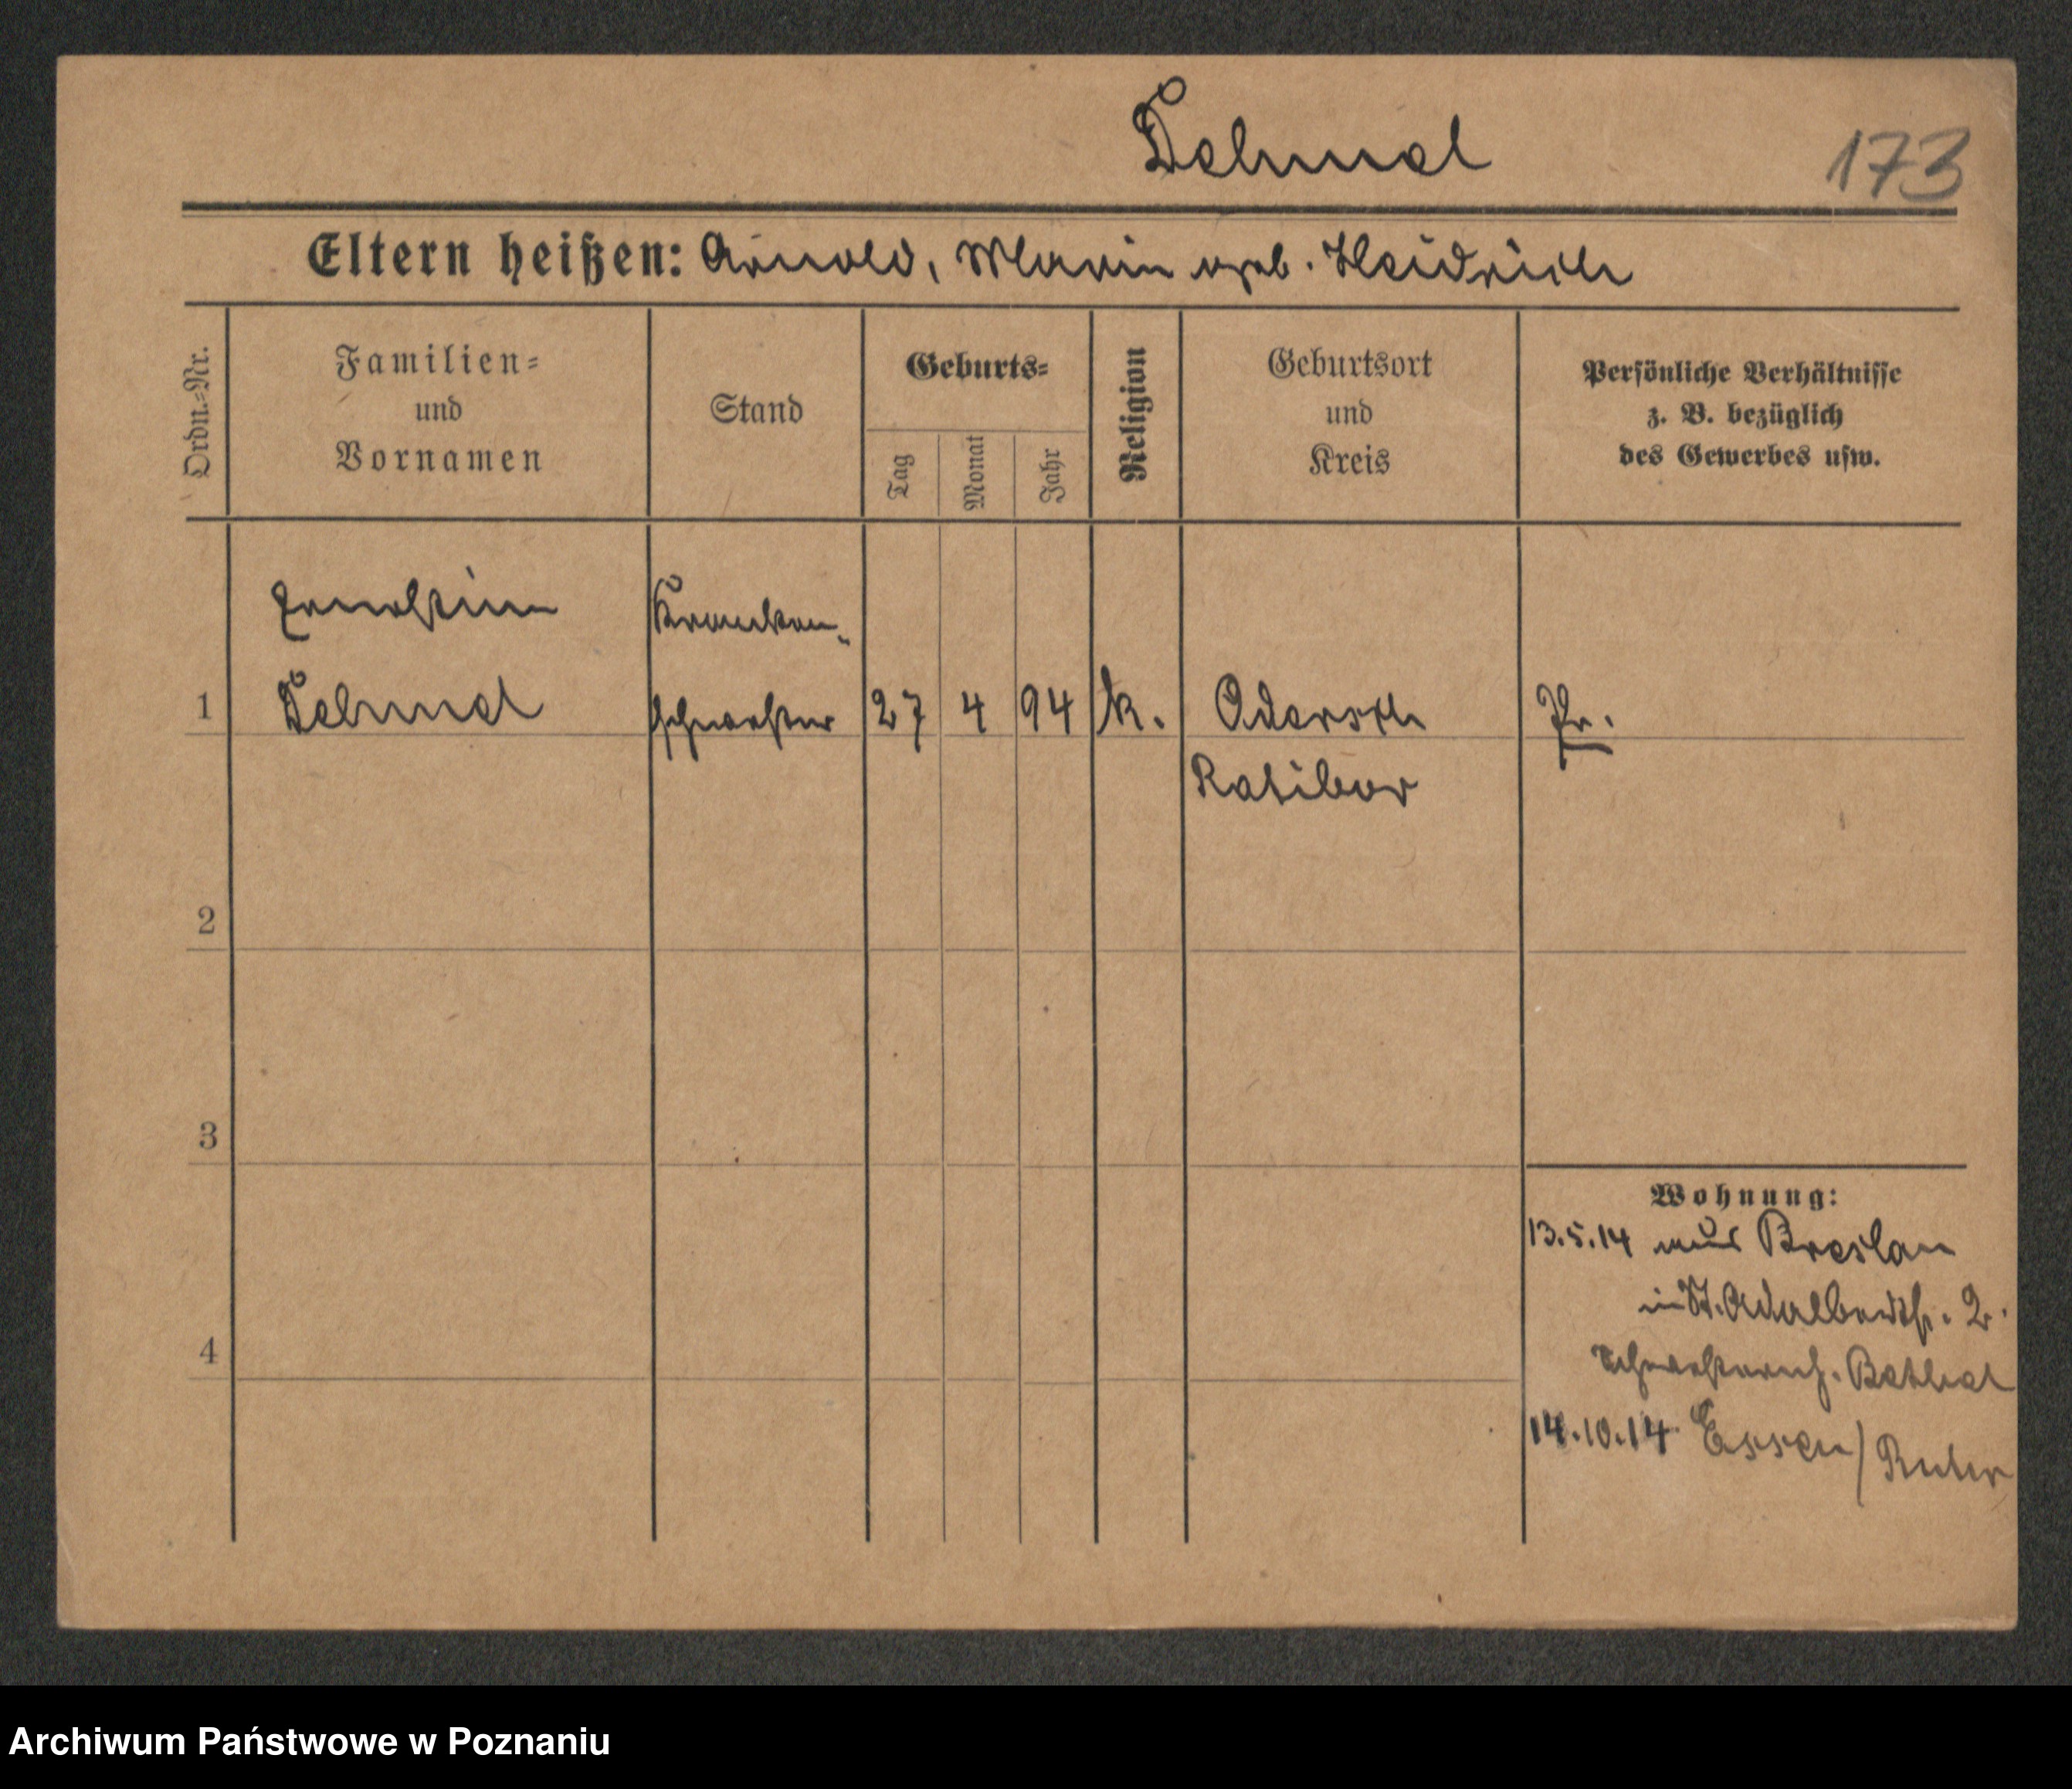 Dehmel
173
Eltern heißen: Arnold, Marie geb. Heidrich
Ordn.-Nr.
Familien-
und
Vornamen
Stand
Geburts-
Tag
Monat
Jahr
Religion
Geburtsort
und
Kreis
Persönliche Verhältnisse
z. B. bezüglich
des Gewerbes usw.
Ernestine Kranken-
1 Dehmel schwester 27 4 94 k. Odersch Pr.
Ratibor
2
3
4
Wohnung:
13.5.14 aus Breslau
in St. Adalbertstr. 2.
Schwesternh. Bethel
14.10.14 Essen/Ruhr
Archiwum Państwowe w Poznaniu